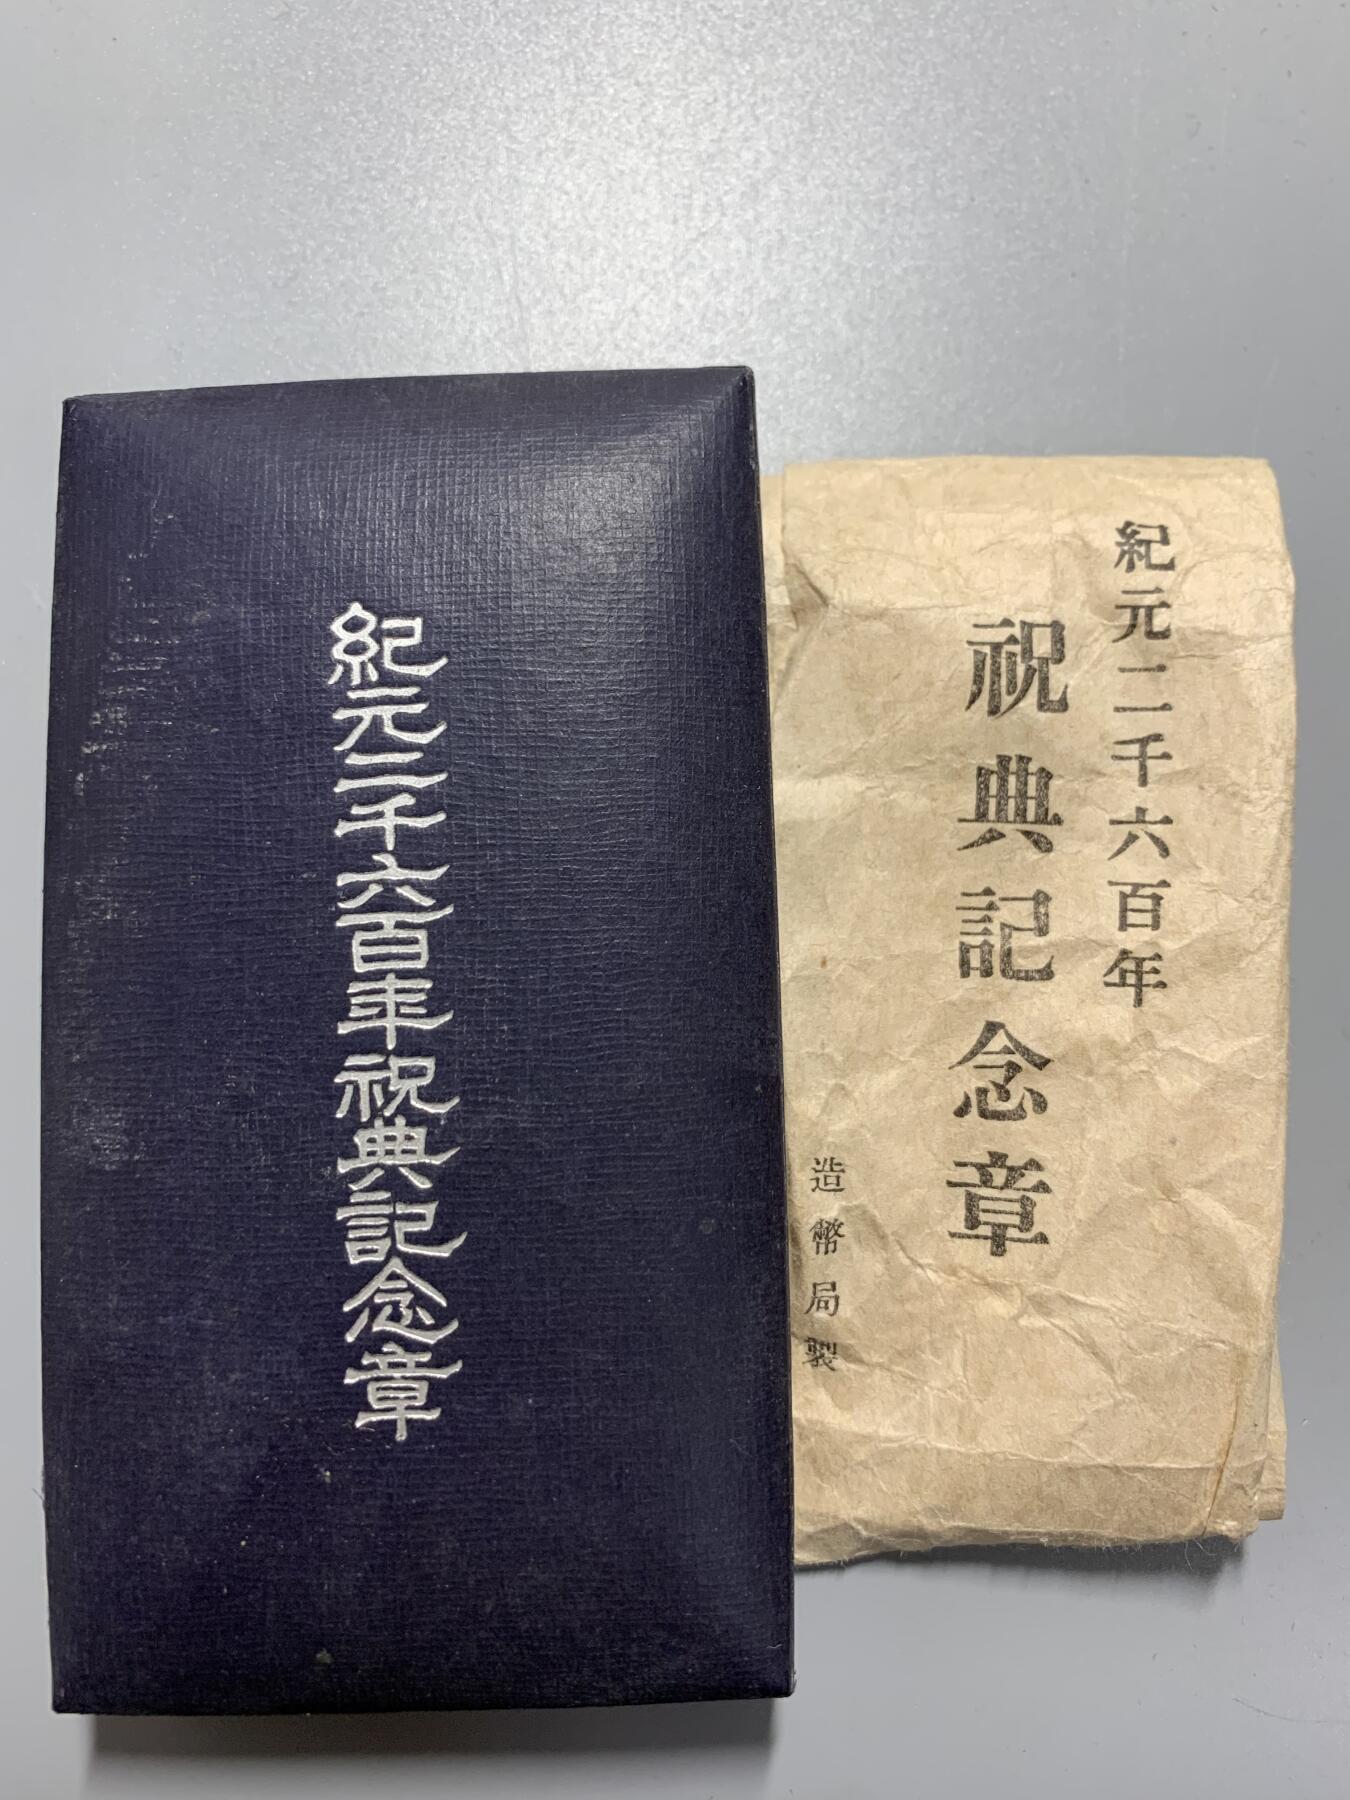 紀元二千六百年祝典記念章
紀元二千六百年
祝典記念章
造幣局製